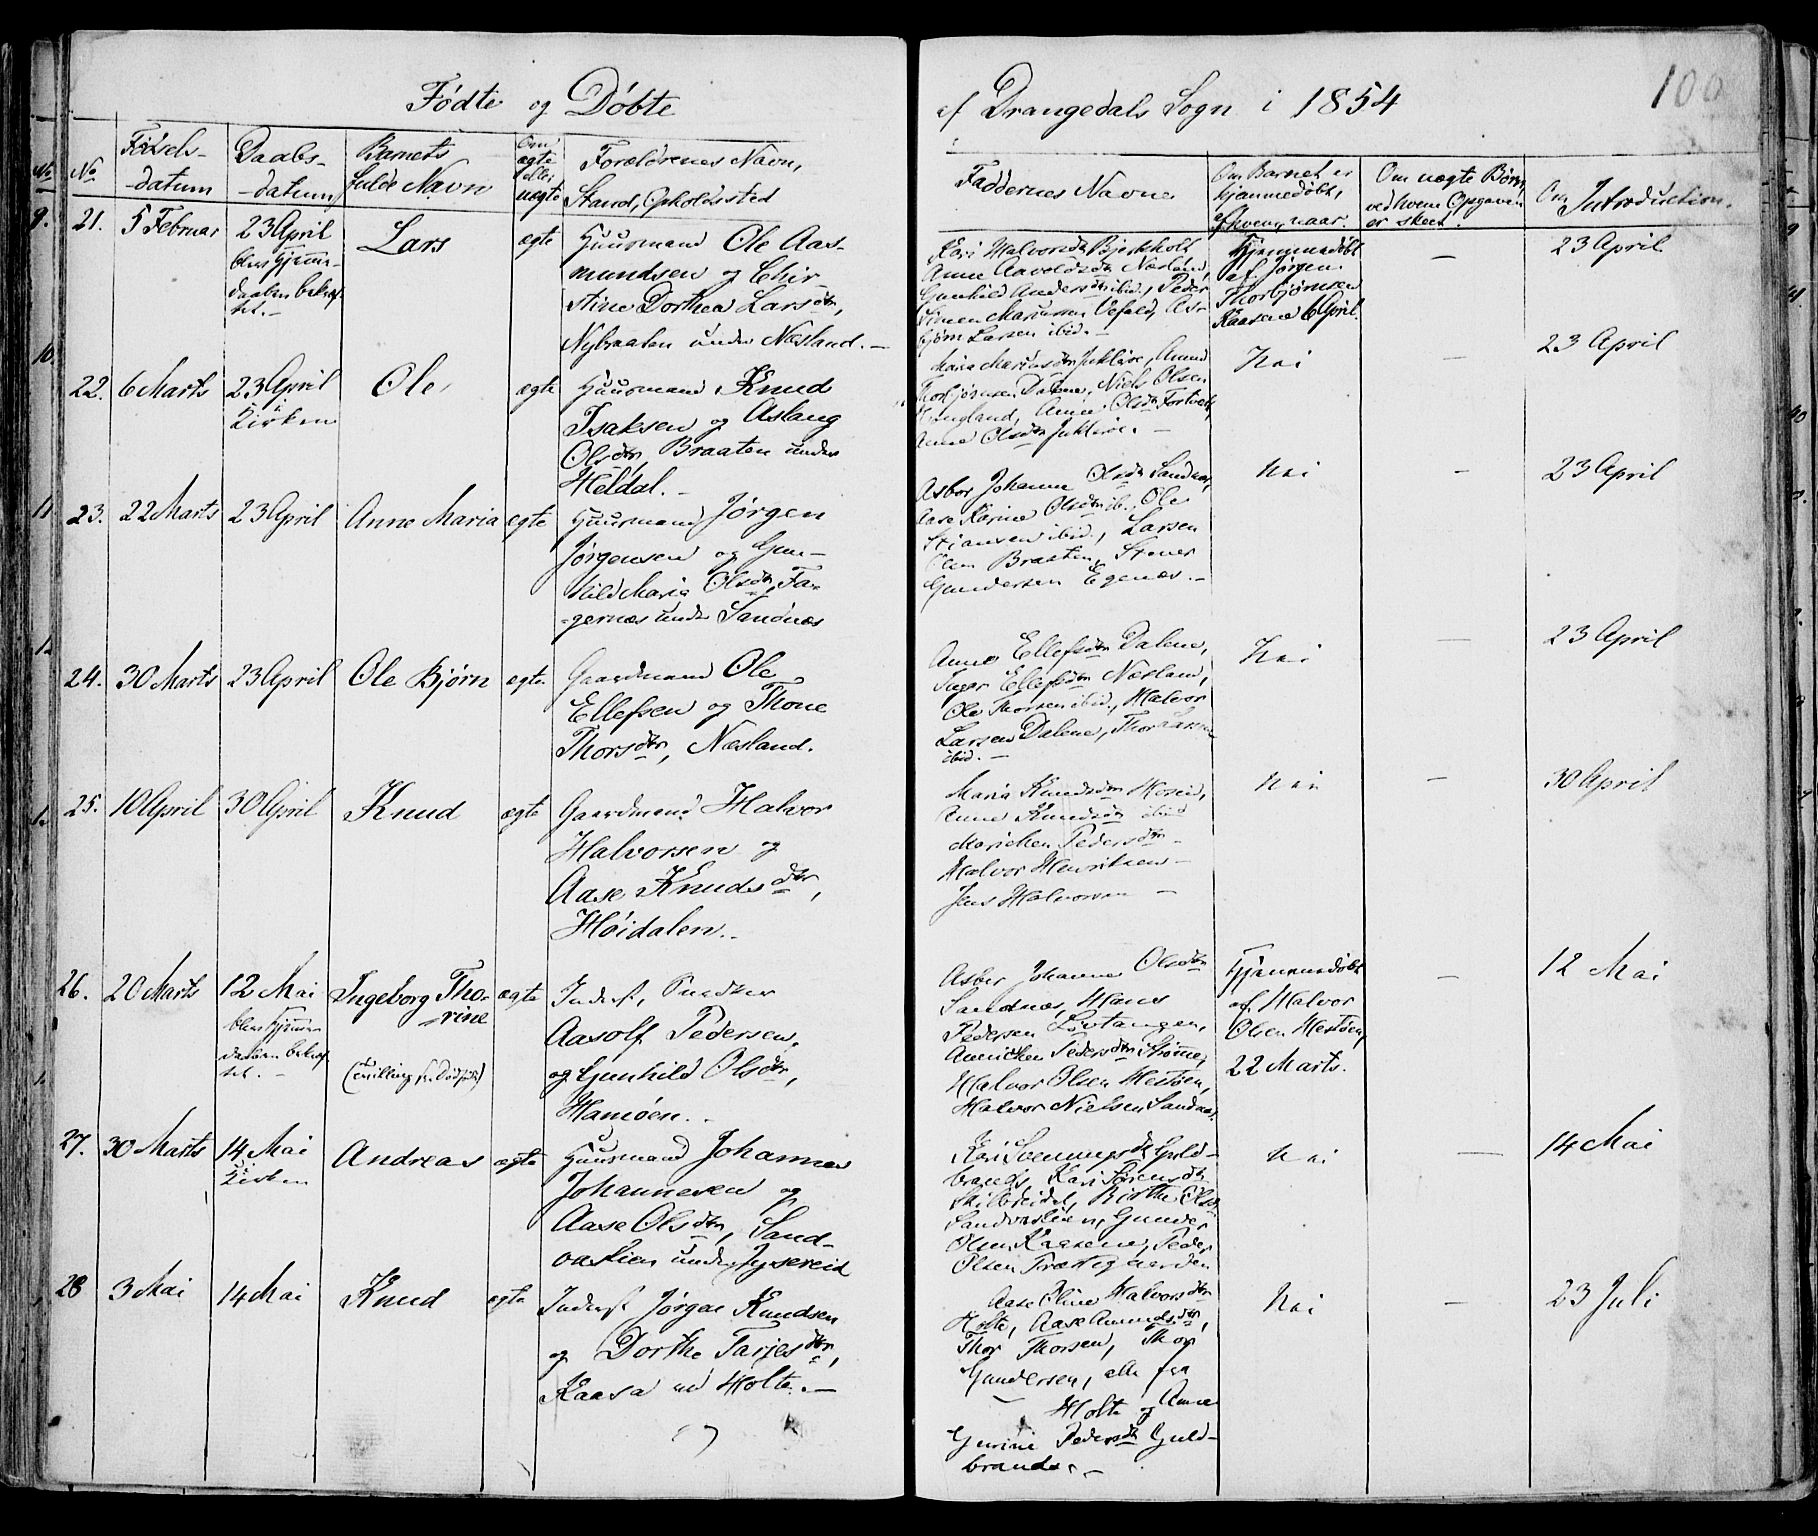 Fødte og Døbte
af Drangedals Sogn i 1854
100
No
Fødsels-
-datum
Daabs-
-datum
Barnets
fulde Navn
Om
ægte
eller
uægte
Forældrenes Navn,
Stand, Opholdssted
Faddernes Navne
Om Barnet er
hjemmedøbt,
af hvem, naar.
Om uægte Børn,
ved hvem Opgaven
er skeet.
Om Introduction.
21.
5 Februar
23 April
blev Hjemme-
daaben bekræf-
tet.-
Lars
ægte
Huusmand Ole Aas-
mundsen og Chir-
stine Dorthea Larsdtr,
Nybraaten under Næsland.-
Kari Halvorsdtr Bjerkholt
Anne Aavoldsdtr Næsland,
Gunhild Andersdtr ibid., Peder
Simen Mariussen Vefald, As-
bjørn Larsen ibid.-
Hjemmedøbt
af Jørgen
Thorbjørnsen
Kaasene 6 April.
-
23 April
22.
6 Marts
23 April
i
Kirken
Ole
ægte
Huusmand Knud
Isaksen og Aslaug
Olsdtr, Braaten under
Heldal.-
Maria Mariusdtr Amund
Thorbjørnsen Dalene, Niels Olsen
Anne Olsdtr
Anne Olsdtr
Nei
-
23 April
23.
22 Marts
23 April
Anne Maria
ægte
Huusmand Jørgen
Jørgensen og Gun-
hild Maria Olsdtr, Fa-
-gernæs under Sandnæs
Asbor Johanne Olsdtr Sandnæs,
Aase Karine Olsdtr ib. Ole
Stiansen ibid., Larsen
Olsen Braaten, Stener
Gundersen Egenæs.-
Nei
-
23 April
24.
30 Marts
23 April
Ole Bjørn
ægte
Gaardmand Ole
Ellefsen og Thone
Thorsdtr, Næsland.
Anne Ellefsdtr Dalene,
Inger Ellefsdtr Næsland,
Ole Thorsen ibid., Halvor
Larsen Dalene, Thor Larsen
ibid.-
Nei
-
23 April
25.
10 April
30 April
Knud
ægte
Gaardmand Halvor
Halvorsen og
Aase Knudsdtr,
Høidalen.-
Maria Knudsdtr
Anne Knudsdtr ibid
Marichen Pedersdtr -
Halvor Henriksen -
Jens Halvorsen -
Nei
-
30 April
26.
20 Marts
12 Mai
blev Hjemme-
daaben bekræf-
tet.-
Ingeborg Tho-
-rine
(Tvilling
ægte
Inderst,
Aasolf Pedersen,
og Gunhild Olsdtr,
Hamøen.-
Asbor Johanne Olsdtr
Sandnæs, Hans
Pedersen Løvtangen,
Annichen Pedersdtr Strømme,
Halvor Olsen Hestøen,
Halvor Nielsen Sandnæs
Hjemmedøbt
af Halvor
Olsen Hestøen,
22 Marts.
-
12 Mai
27.
30 Marts
14 Mai
i
Kirken
Andreas
ægte
Huusmand Johannes
Johannesen og
Aase Olsdtr, Sand-
vaslien under Gjysereid
Kari Svenungsdtr Guld-
brands, Kari Sørensdtr
Birthe Olsdtr
Sandvaslien, Gunder
Olsen Kaasene, Peder
Olsen Præstegaarden
Nei
-
14 Mai
28
3 Mai
14 Mai
Knud
ægte
Inderst Jørgen Knudsen
og Dorthe Tarjesdtr,
Kaasa un Holte.-
Aase Oline Halvorsdtr
Holte, Aase Amundsdtr,
Thor Thorsen, Thor
Gundersen, alle fra
Holte og Anne
Gurine Pedersdtr Guld-
brands.-
Nei
-
23 Juli